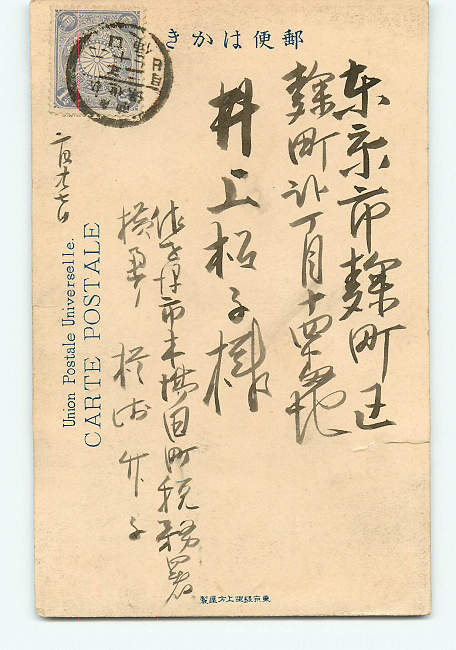 郵便はかき
東京市麹町区
麹町弐丁目十四番地
井上松子様
佐世保市木場田町税務署
横尾
二月廿七日
Union Postale Universelle.
CARTE POSTALE
東京銀座上方屋製